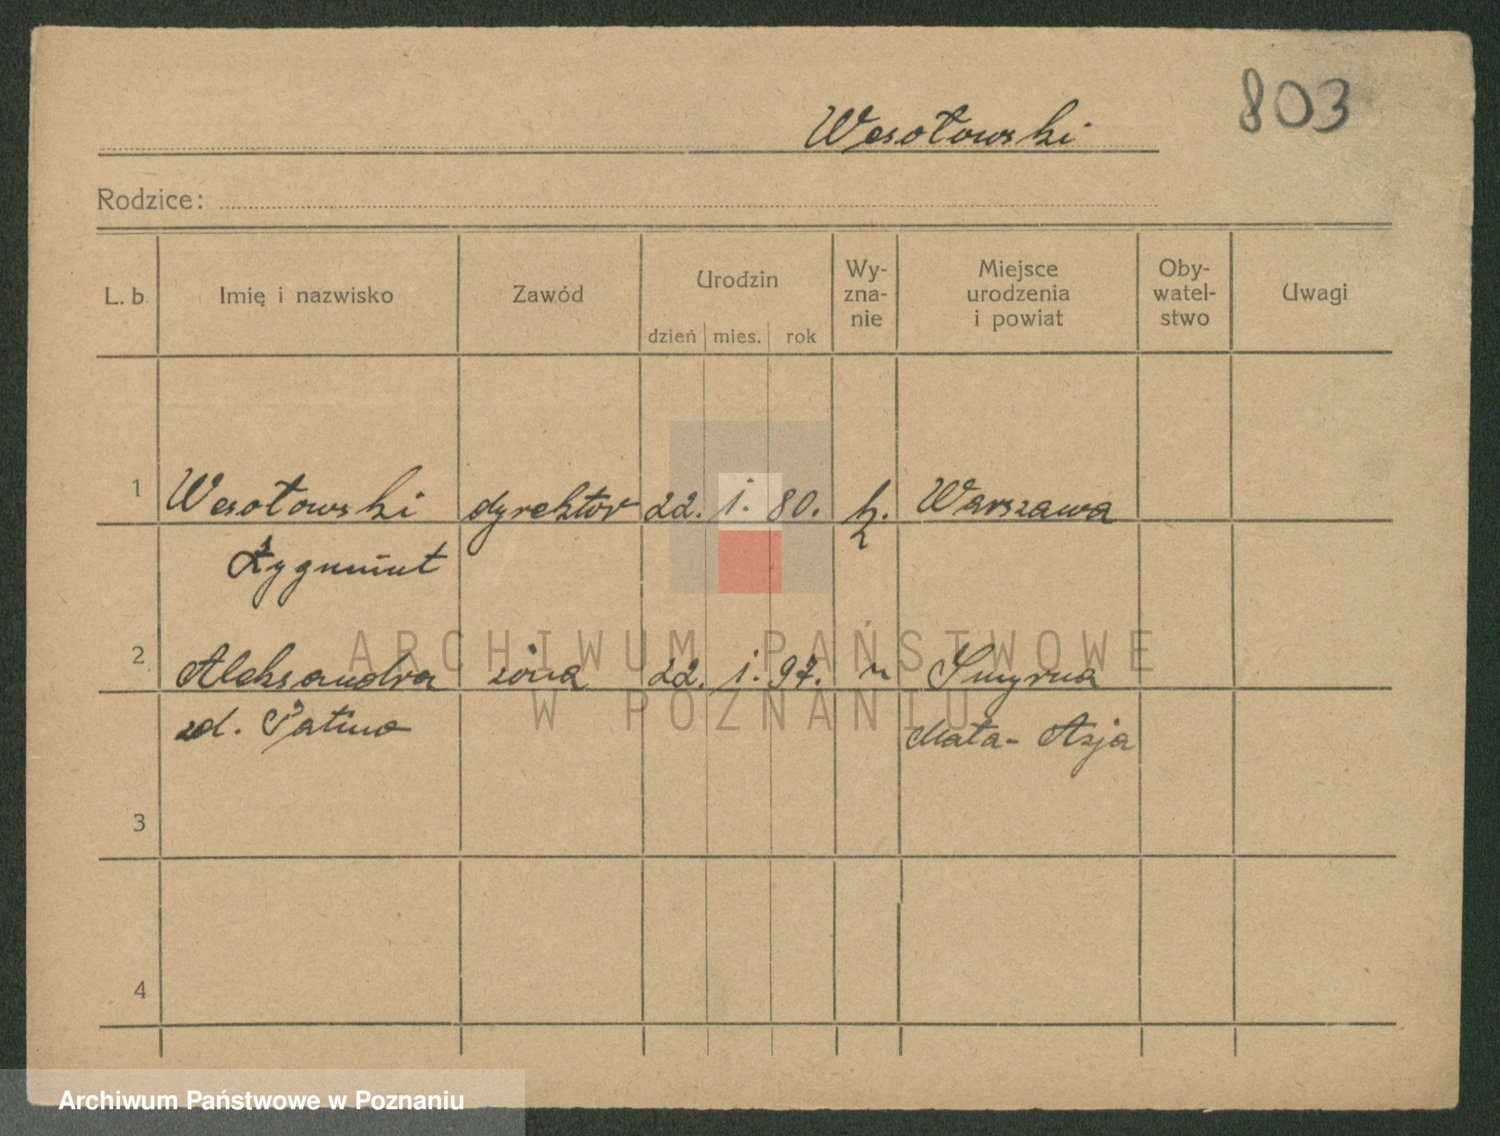 803
Wesołowski
Rodzice:
L. b. Imię i nazwisko Zawód Urodzin dzień mies. rok Wy- zna- nie Miejsce urodzenia i powiat Oby- watel- stwo Uwagi
1 Wesołowski dyrektor 22. 1. 80. k. Warszawa
Zygmunt
ARCHIWUM PAŃSTWOWE
2 Aleksandra żona 22. 1. 97. " Smyrna
W POZNANIU
zd. Patino Mała-Azja
3
4
Archiwum Państwowe w Poznaniu